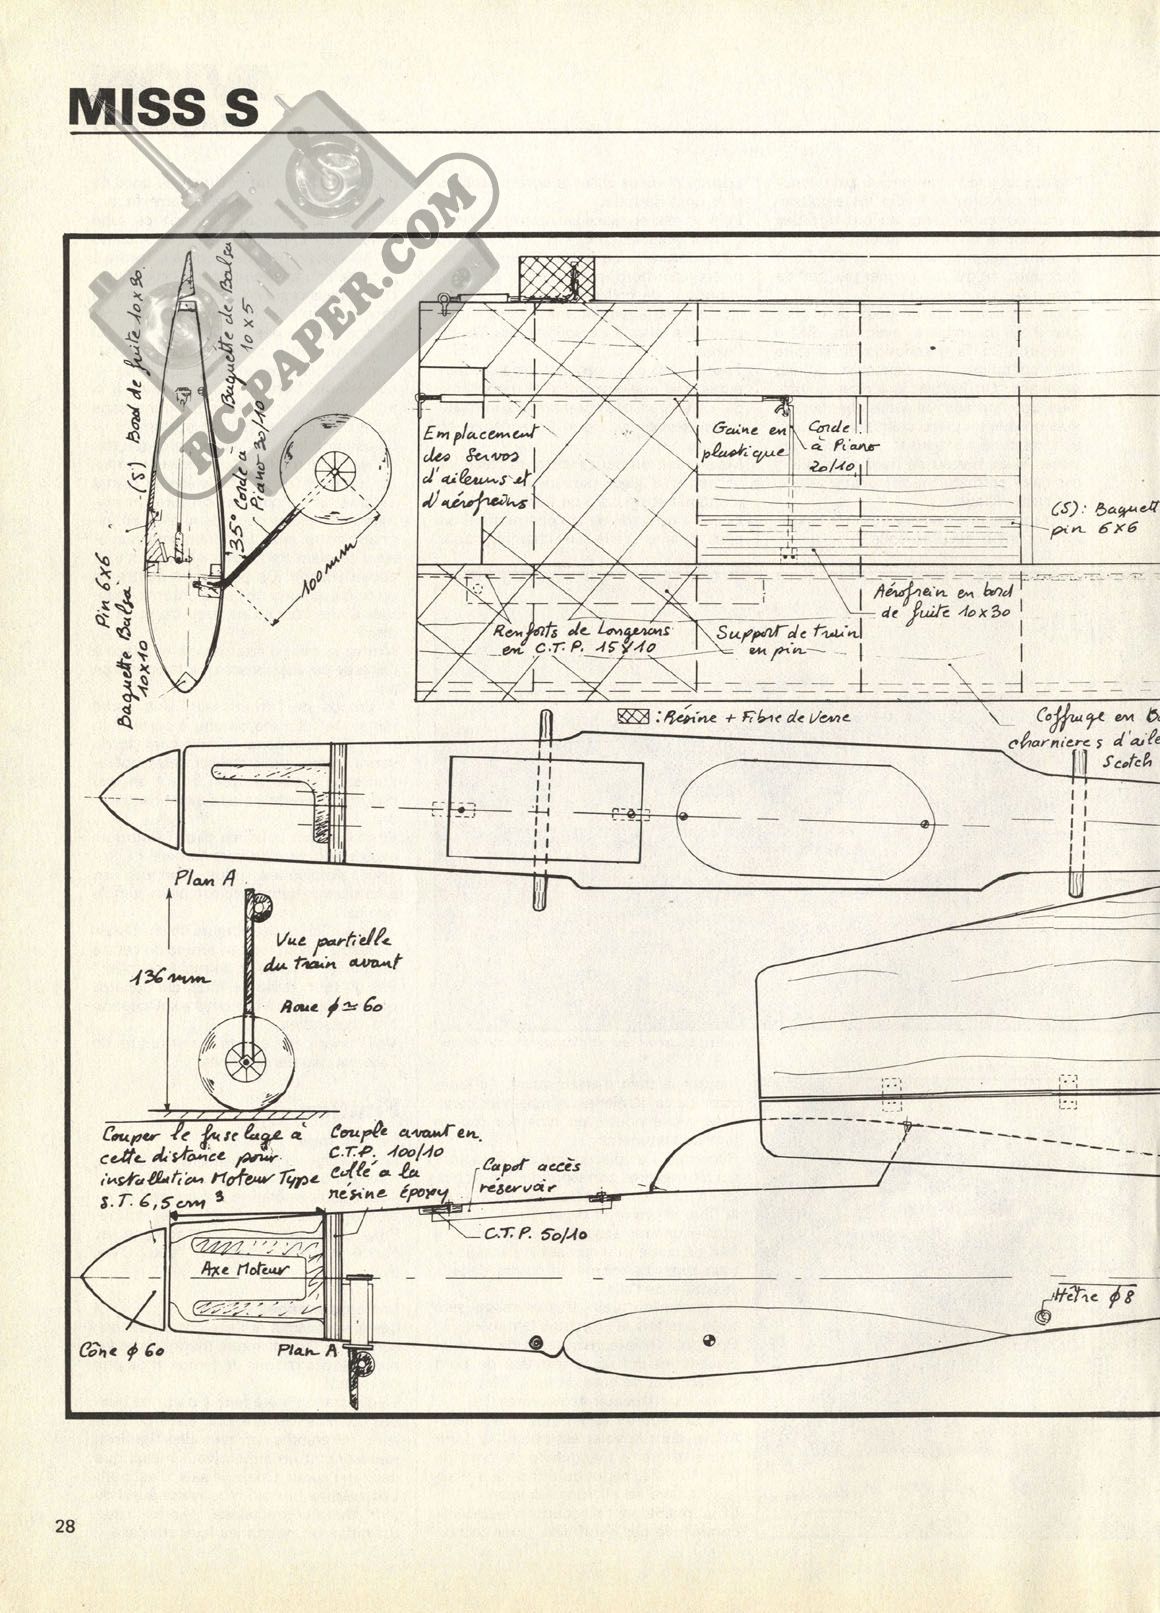 MISS S
RC-PAPER.COM
(S) Bord de fuite 10x30.
Baguette de Balsa
10 x 5
35° Corde à
Piano 30/10
100mm
Pin 6x6
Baguette Balsa
10x10
Emplacement
des Servos
d'ailerons et
d'aérofreins
Gaine en
plastique
Corde
à Piano
20/10
(S): Baguett
pin 6x6
Aérofrein en bord
de fuite 10x30
Renforts de Longerons
en C.T.P. 15/10
Support de train
en pin
: Résine + Fibre de Verre
Coffrage en B
charnieres d'aile
Scotch
Plan A
136mm
Vue partielle
du train avant
Roue ϕ ≃ 60
Couper le fuselage à
cette distance pour
installation Moteur Type
S.T. 6,5 cm³
Couple avant en.
C.T.P. 100/10
Collé a la
résine époxy
Capot accès
réservoir
C.T.P. 50/10
Axe Moteur
Hêtre ϕ8
Cône ϕ 60
Plan A
28